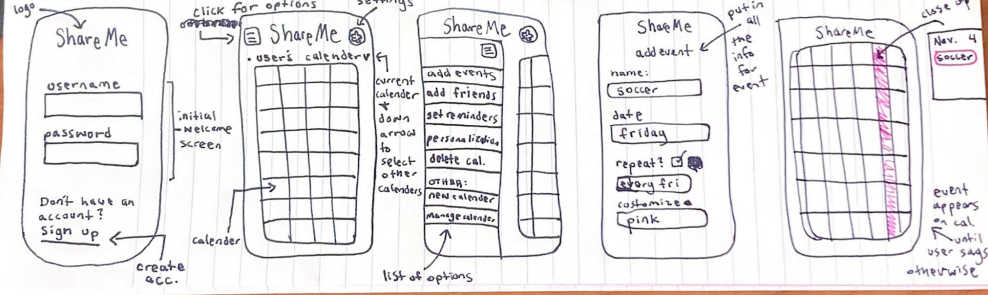 logo
ShareMe
username
password
initial
welcome
screen
Don't have an
account?
sign up
create
acc.
click for options
settings
ShareMe
user's calender
current
calender
+
down
arrow
to
select
other
calenders
calender
ShareMe
add events
add friends
set reminders
personalization
delete cal.
OTHER:
new calender
manage calender
list of options
ShareMe
add event
put in
all
the
info
for
event
name:
soccer
date
friday
repeat?
every fri
customize
pink
ShareMe
close up
Nov. 4
soccer
event
appears
on cal.
until
user says
otherwise